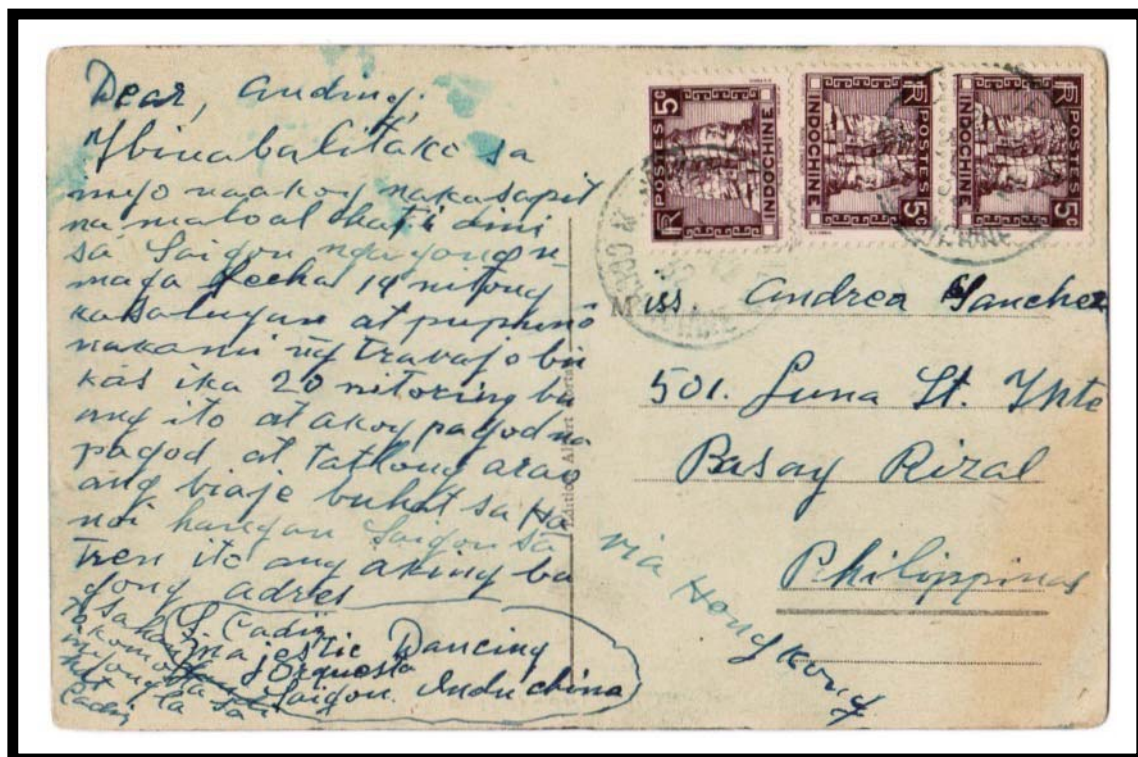 Dear, Anding;
Ybinabalitako sa
inyo naakoy nakasapit
na maloalhati dini
sa Saigon ngayong u
maga fecha 19 nitong
kasaluyan at pupuno
nakami ng travajo bu
kas ika 20 nitoring bu
ang ito at akoy pagod na
pagod at tatlong arao
ang biaje buhat sa Ha
noi hangan Saigon sa
tren ito ang aking ba
gong adres
S. Cadiz
Majestic Dancing
Orquesta
Saigon. Indu china
Cadiz
POSTES 5c
RF INDOCHINE
RF POSTES
INDOCHINE 5c
RF POSTES
INDOCHINE 5c
Miss Andrea Sanchez
501. Luna St. Ynte
Pasay Rizal
Philippines
via Hongkong
Edition Albert Portail